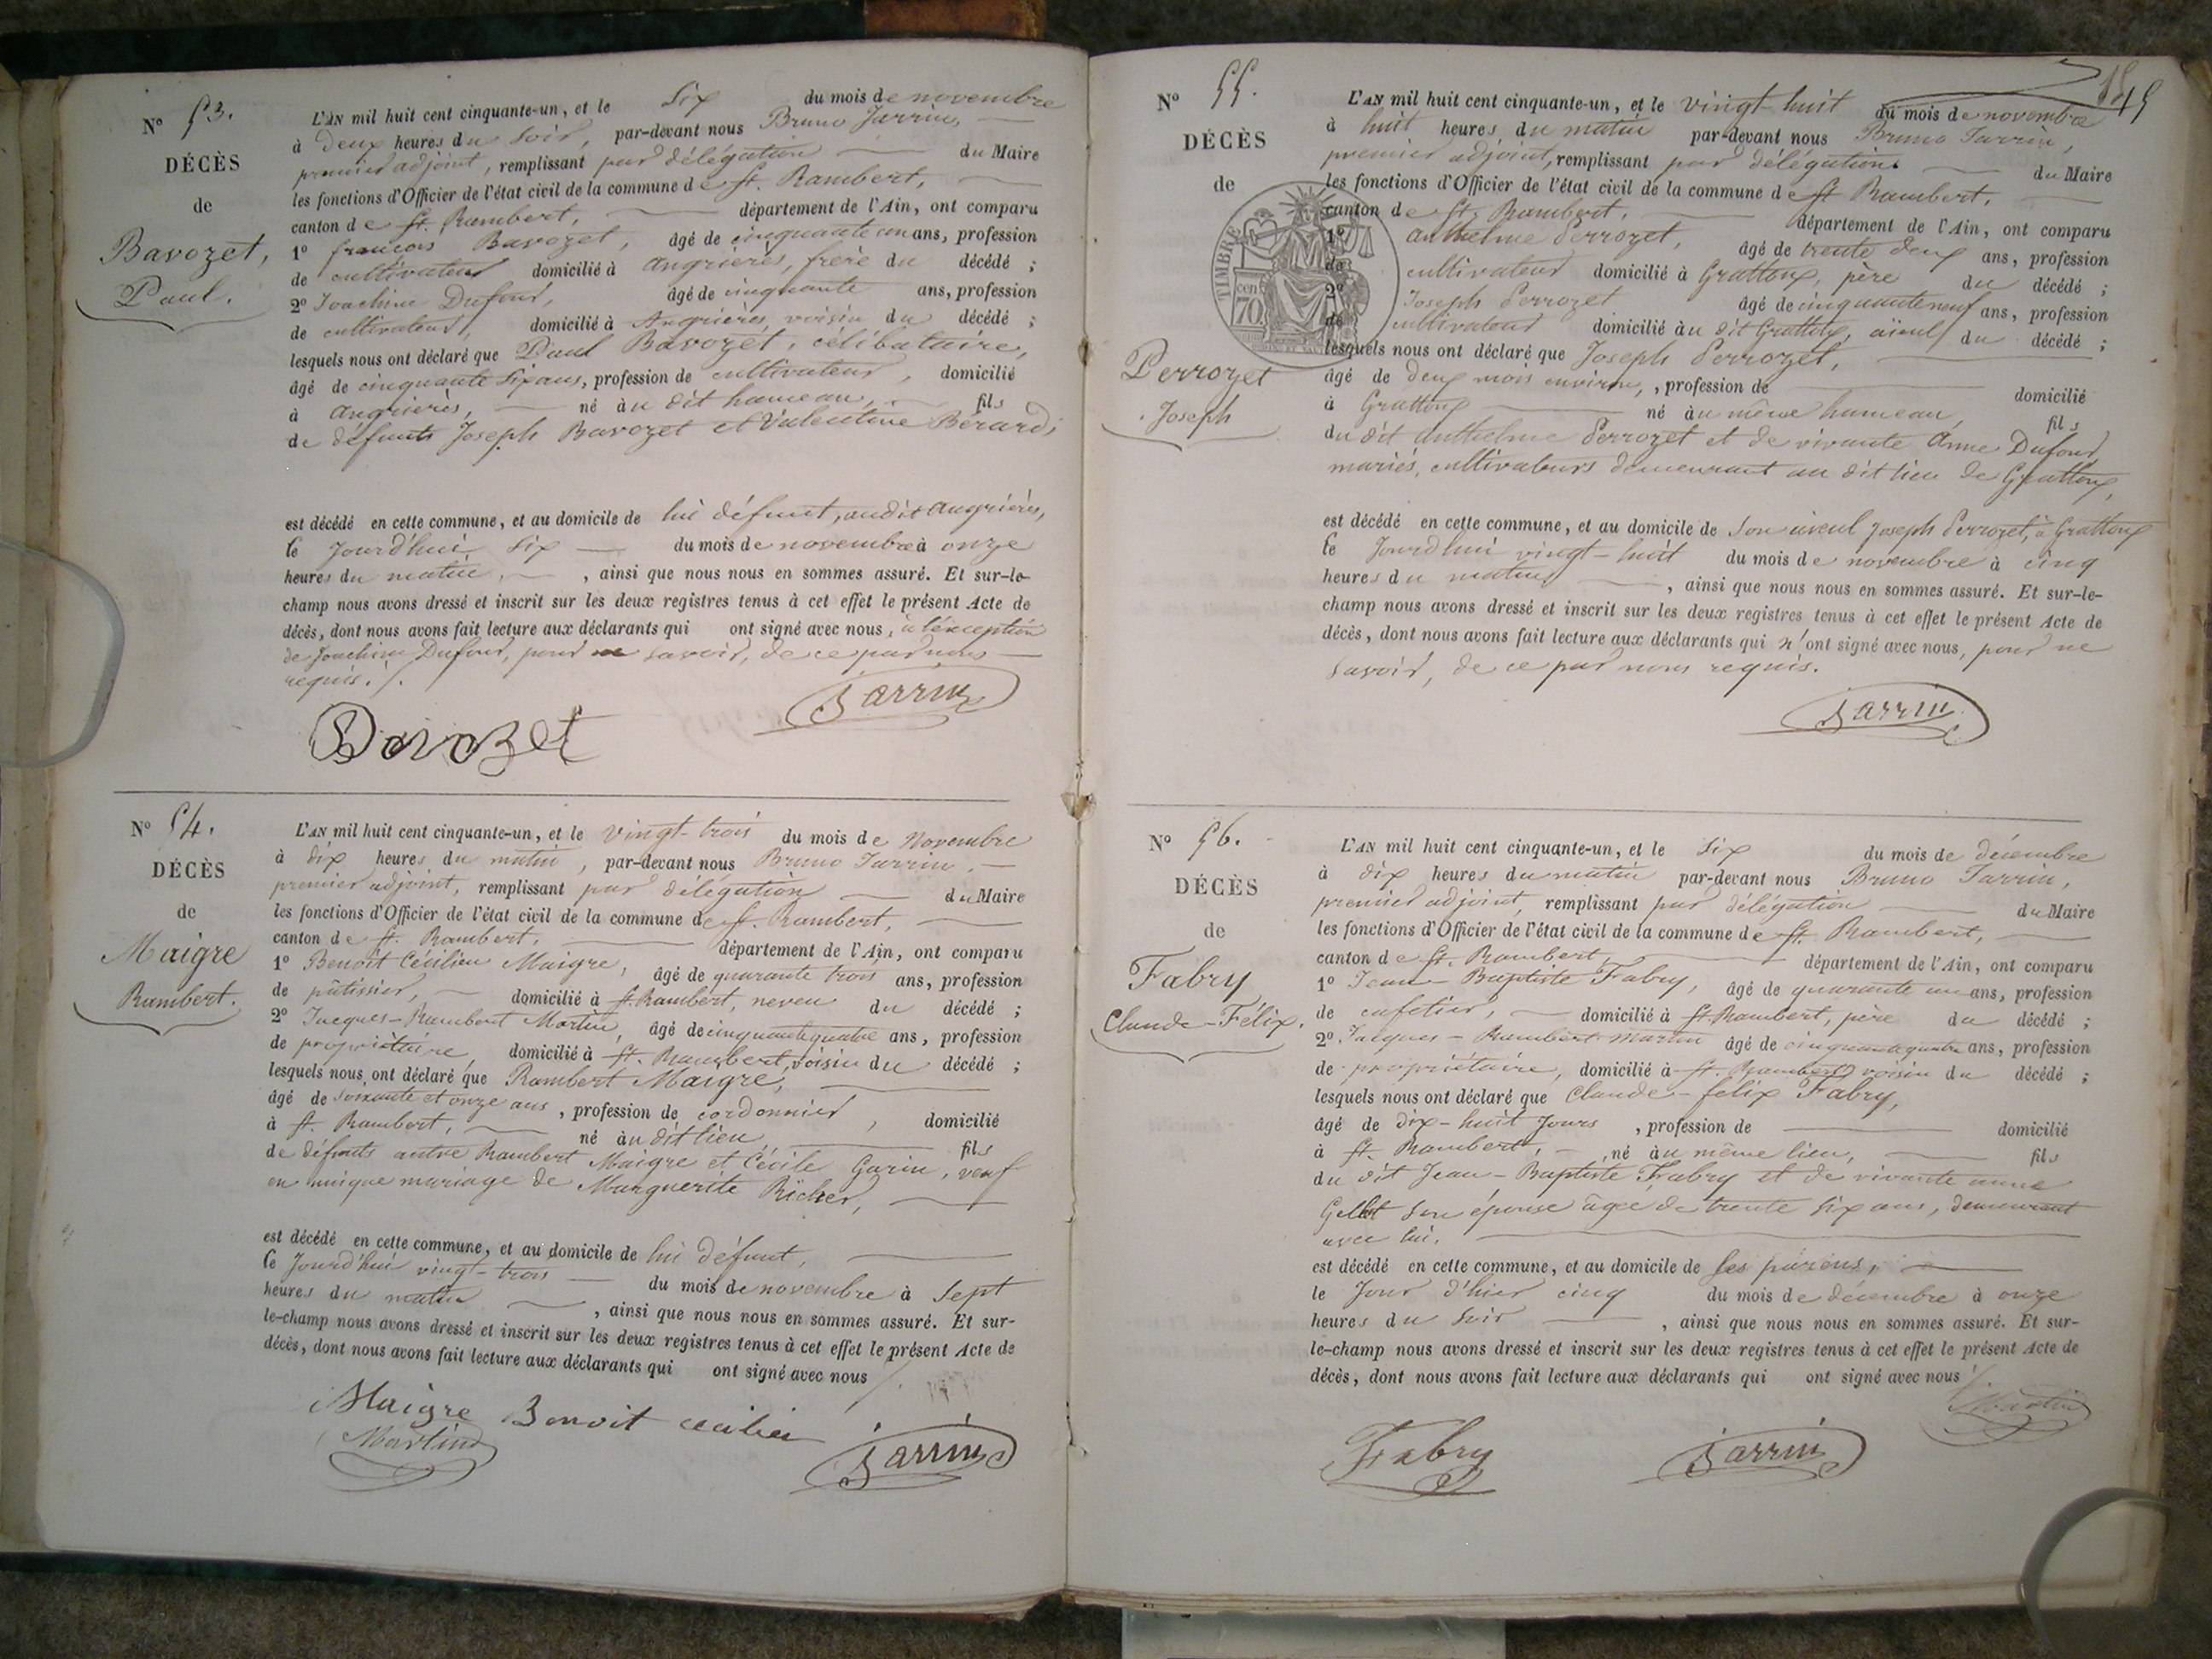 N° 53.
DÉCÈS
de
Bavozet,
Paul.
L'AN mil huit cent cinquante-un, et le Six du mois de novembre
à deux heures du soir, par-devant nous Bruno Jarrin,
premier adjoint, remplissant par délégation du Maire
les fonctions d'Officier de l'état civil de la commune de St. Rambert,
canton de St. Rambert, département de l'Ain, ont comparu
1° françois Bavozet, âgé de cinquante un ans, profession
de cultivateur domicilié à Angrières, frère du décédé ;
2° Joachim Dufour, âgé de cinquante ans, profession
de cultivateur, domicilié à Angrières, voisin du décédé ;
lesquels nous ont déclaré que Paul Bavozet, célibataire,
âgé de cinquante six ans, profession de cultivateur, domicilié
à Angrières, né au dit hameau, fils
de défunts Joseph Bavozet et Valentine Bérard ;
est décédé en cette commune, et au domicile de lui défunt, audit Angrières,
le jourd'hui six du mois de novembre à onze
heures du matin, , ainsi que nous nous en sommes assuré. Et sur-le-
champ nous avons dressé et inscrit sur les deux registres tenus à cet effet le présent Acte de
décès, dont nous avons fait lecture aux déclarants qui ont signé avec nous, à l'exception
de Joachim Dufour, pour ne savoir, de ce par nous
requis. /.
Jarrin
Bavozet
N° 54.
DÉCÈS
de
Maigre
Rambert.
L'AN mil huit cent cinquante-un, et le vingt-trois du mois de Novembre
à dix heures du matin, par-devant nous Bruno Jarrin,
premier adjoint, remplissant par délégation du Maire
les fonctions d'Officier de l'état civil de la commune de St. Rambert,
canton de St. Rambert, département de l'Ain, ont comparu
1° Benoît Cécilien Maigre, âgé de quarante trois ans, profession
de pâtissier, domicilié à St. Rambert, neveu du décédé ;
2° Jacques-Rambert Martin, âgé de cinquante quatre ans, profession
de propriétaire, domicilié à St. Rambert, voisin du décédé ;
lesquels nous ont déclaré que Rambert Maigre,
âgé de soixante et onze ans, profession de cordonnier, domicilié
à St. Rambert, né au dit lieu, fils
de défunts autre Rambert Maigre et Cécile Garin, veuf
en unique mariage de Marguerite Richer,
est décédé en cette commune, et au domicile de lui défunt,
le jourd'hui vingt-trois du mois de novembre à sept
heures du matin , ainsi que nous nous en sommes assuré. Et sur-
le-champ nous avons dressé et inscrit sur les deux registres tenus à cet effet le présent Acte de
décès, dont nous avons fait lecture aux déclarants qui ont signé avec nous /.
Maigre Benoit cecilien
Martin
Jarrin
45
N° 55.
DÉCÈS
de
TIMBRE
cen
70
Perrozet
Joseph
L'AN mil huit cent cinquante-un, et le vingt-huit du mois de novembre
à huit heures du matin par-devant nous Bruno Jarrin,
premier adjoint, remplissant par délégation du Maire
les fonctions d'Officier de l'état civil de la commune de St Rambert,
canton de St. Rambert, département de l'Ain, ont comparu
1° Anthelme Perrozet, âgé de trente deux ans, profession
de cultivateur domicilié à Grattoux, père du décédé ;
2° Joseph Perrozet âgé de cinquante neuf ans, profession
de cultivateur domicilié au dit Grattoux, aïeul du décédé ;
lesquels nous ont déclaré que Joseph Perrozet,
âgé de deux mois environ, , profession de domicilié
à Grattoux né au même hameau, fils
du dit Anthelme Perrozet et de vivante Anne Dufour
mariés, cultivateurs demeurant au dit lieu de Grattoux,
est décédé en cette commune, et au domicile de son aïeul Joseph Perrozet, à Grattoux
le jourd'hui vingt-huit du mois de novembre à cinq
heures du matin , ainsi que nous nous en sommes assuré. Et sur-le-
champ nous avons dressé et inscrit sur les deux registres tenus à cet effet le présent Acte de
décès, dont nous avons fait lecture aux déclarants qui n'ont signé avec nous, pour ne
savoir, de ce par nous requis.
Jarrin
N° 56.
DÉCÈS
de
Fabry
Claude-Félix.
L'AN mil huit cent cinquante-un, et le Six du mois de décembre
à dix heures du matin par-devant nous Bruno Jarrin,
premier adjoint, remplissant par délégation du Maire
les fonctions d'Officier de l'état civil de la commune de St. Rambert,
canton de St. Rambert, département de l'Ain, ont comparu
1° Jean-Baptiste Fabry, âgé de quarante un ans, profession
de cafetier, domicilié à St. Rambert, père du décédé ;
2° Jacques-Rambert Martin âgé de cinquante quatre ans, profession
de propriétaire, domicilié à St. Rambert, voisin du décédé ;
lesquels nous ont déclaré que Claude-felix Fabry,
âgé de dix-huit jours , profession de domicilié
à St. Rambert, né au même lieu, fils
du dit Jean-Baptiste Fabry et de vivante anne
son épouse âgée de trente six ans, demeurant
avec lui.
est décédé en cette commune, et au domicile de ses parens,
le Jour d'hier cinq du mois de décembre à onze
heures du soir , ainsi que nous nous en sommes assuré. Et sur-
le-champ nous avons dressé et inscrit sur les deux registres tenus à cet effet le présent Acte de
décès, dont nous avons fait lecture aux déclarants qui ont signé avec nous /.
Martin
Fabry
Jarrin